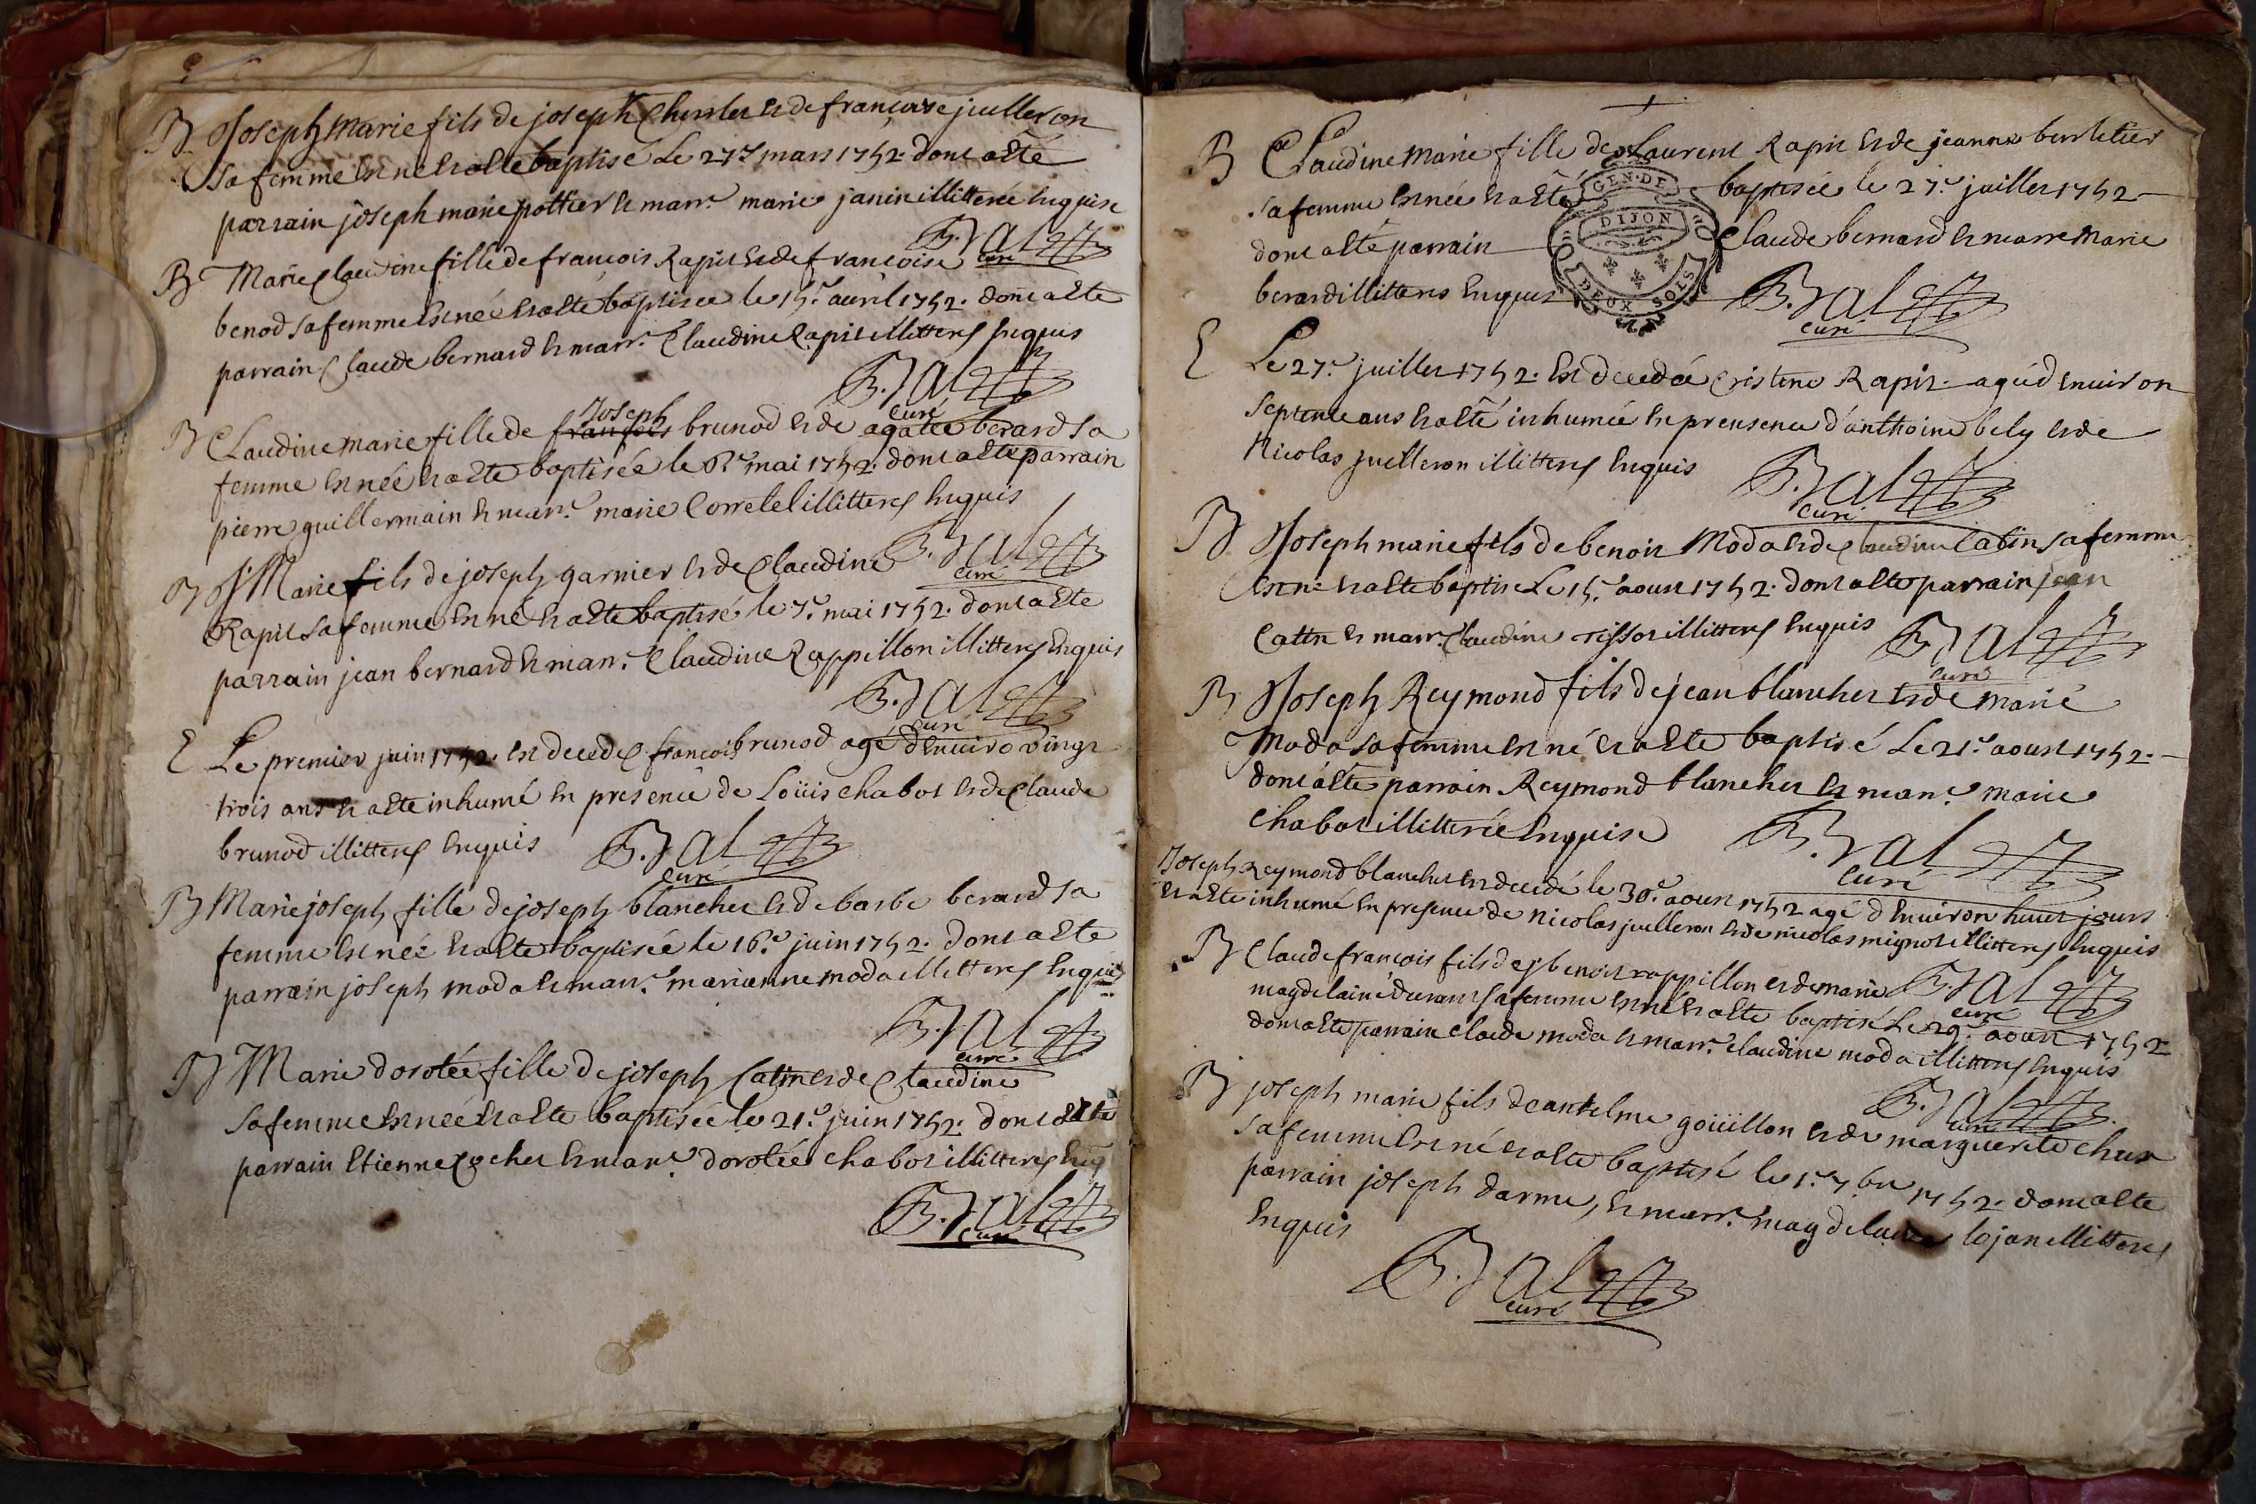 B Joseph Marie fils de joseph et de francoise juilleron
sa femme est né et a été baptisé Le 27e mars 1752 dont a été
parrain joseph marie pottier et marr.e marie janin illitterée enquise
B. Jal
curé
B Marie Claudine fille de francois Rapit et de francoise
benod sa femme est née et a été baptisée le 15.e avril 1752. dont a été
parrain Claude bernard et marr.e Claudine Rapit illitteres enquis
B. Jal
curé
Joseph
B Claudine marie fille de francois brunod et de agatte berard sa
femme est née et a été baptisée le mai 1752. dont a été parrain
pierre guillermain et marr.e marie illitteres enquis
B. Jal
curé
B Marie fils de joseph garnier et de Claudine
Rapit sa femme est né et a été baptisé le 7.e mai 1752. dont a été
parrain jean bernard et marr.e Claudine Rappillon illitteres Enquis
B. Jal
curé
E Le premier juin 1752. est decedé francois brunod agé d'Enviro vingt
trois ans et a été inhumé en presence de Loüis chabot et de Claude
brunod illitteres enquis
B. Jal
curé
B Marie joseph fille de joseph blanchet et de barbe berard sa
femme est née et a été baptisée le 16.e juin 1752. dont a été
parrain joseph moda et marr.e marianne moda illitteres Enquis
B. Jal
curé
B Marie dorotée fille de joseph Catin et de Claudine
sa femme est née et a été baptisée le 21.e juin 1752. dont a été
parrain Etienne Cochet et marr.e dorotée chabot illitteres Enq
B. Jal
curé
B Claudine Marie fille de Laurent Rapit et de jeanne berthetier
sa femme est née et a été baptisée le 27.e juillet 1752
dont a été parrain Claude bernard et marr.e Marie
berard illitteres Enquis
GEN. DE
DIJON
DEUX SOLS
B. Jal
curé
E Le 27.e juillet 1752. est decedée cristine Rapit agée d'Environ
septente ans et a été inhumée en prensence d'anthoine bely et de
Nicolas juilleron illitteres Enquis
B. Jal
curé
B Joseph marie fils de benoit Moda et de Claudine Catin sa femme
est né et a été baptisé Le 15.e aoust 1752. dont a été parrain jean
Cattin et marr.e Claudine tissot illitteres Enquis
B. Jal
curé
B Joseph Reymond fils de jean blanchet et de marie
Moda sa femme est né et a été baptisé Le 21.e aoust 1752.
dont a été parrain Reymond blanchet et marr.e marie
chabot illitterée Enquise
B. Jal
curé
Joseph Reymond blanchet est decedé le 30.e aoust 1752 agé d'Environ huit jours
et a été inhumé en presence de Nicolas juilleron et de nicolas mignot illitteres Enquis
B Claude francois fils de benoit rappillon et de marie
magdelaine durant sa femme est né et a été baptisé Le 29.e aoust 1752
dont a été parrain claude moda et marr.e claudine moda illitteres Enquis
B. Jal
curé
B joseph marie fils de antelme goüillon et de marguerite
sa femme est né et a été baptisé le 1.er 7.bre 1752. dont a été
parrain joseph darme, et marr.e magdelaine illitteres
Enquis
B. Jal
curé